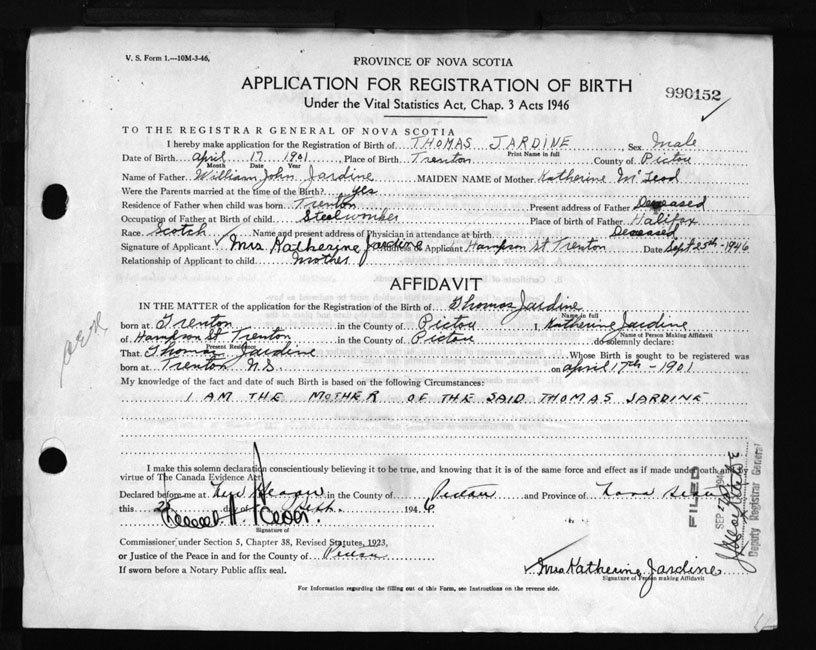 V. S. Form 1.—10M-3-46,
PROVINCE OF NOVA SCOTIA
APPLICATION FOR REGISTRATION OF BIRTH
990152
Under the Vital Statistics Act, Chap. 3 Acts 1946
TO THE REGISTRAR GENERAL OF NOVA SCOTIA
I hereby make application for the Registration of Birth of THOMAS JARDINE Sex Male
Print Name in full
Date of Birth April 17 1901 Place of Birth Trenton County of Pictou
Month Date Year
Name of Father William John Jardine MAIDEN NAME of Mother Katherine McLeod
Were the Parents married at the time of the Birth? yes
Residence of Father when child was born Trenton Present address of Father Deceased
Occupation of Father at Birth of child Place of birth of Father Halifax
Race Scotch Name and present address of Physician in attendance at birth Deceased
Signature of Applicant Mrs Katherine Jardine Address of Applicant Hampson St Trenton Date Sept 25th-1946
Relationship of Applicant to child Mother
AFFIDAVIT
IN THE MATTER of the application for the Registration of the Birth of Thomas Jardine
Name in full
born at Trenton in the County of Pictou I, Katherine Jardine
Name of Person Making Affidavit
of Hampson St Trenton in the County of Pictou do solemnly declare:
Present Residence
That Thomas Jardine Whose Birth is sought to be registered was
born at Trenton N.S. on April 17th-1901
My knowledge of the fact and date of such Birth is based on the following Circumstances:
I AM THE MOTHER OF THE SAID THOMAS JARDINE
I make this solemn declaration conscientiously believing it to be true, and knowing that it is of the same force and effect as if made under oath and by
virtue of The Canada Evidence Act
Declared before me at in the County of Pictou and Province of Nova Scotia
this day of Sept. 1946
Signature of
Commissioner under Section 5, Chapter 38, Revised Statutes, 1923,
or Justice of the Peace in and for the County of Pictou
If sworn before a Notary Public affix seal.
Mrs Katherine Jardine
Signature of Person making Affidavit
For Information regarding the filling out of this Form, see Instructions on the reverse side.
FILED
SEP 27 1946
Deputy Registrar General